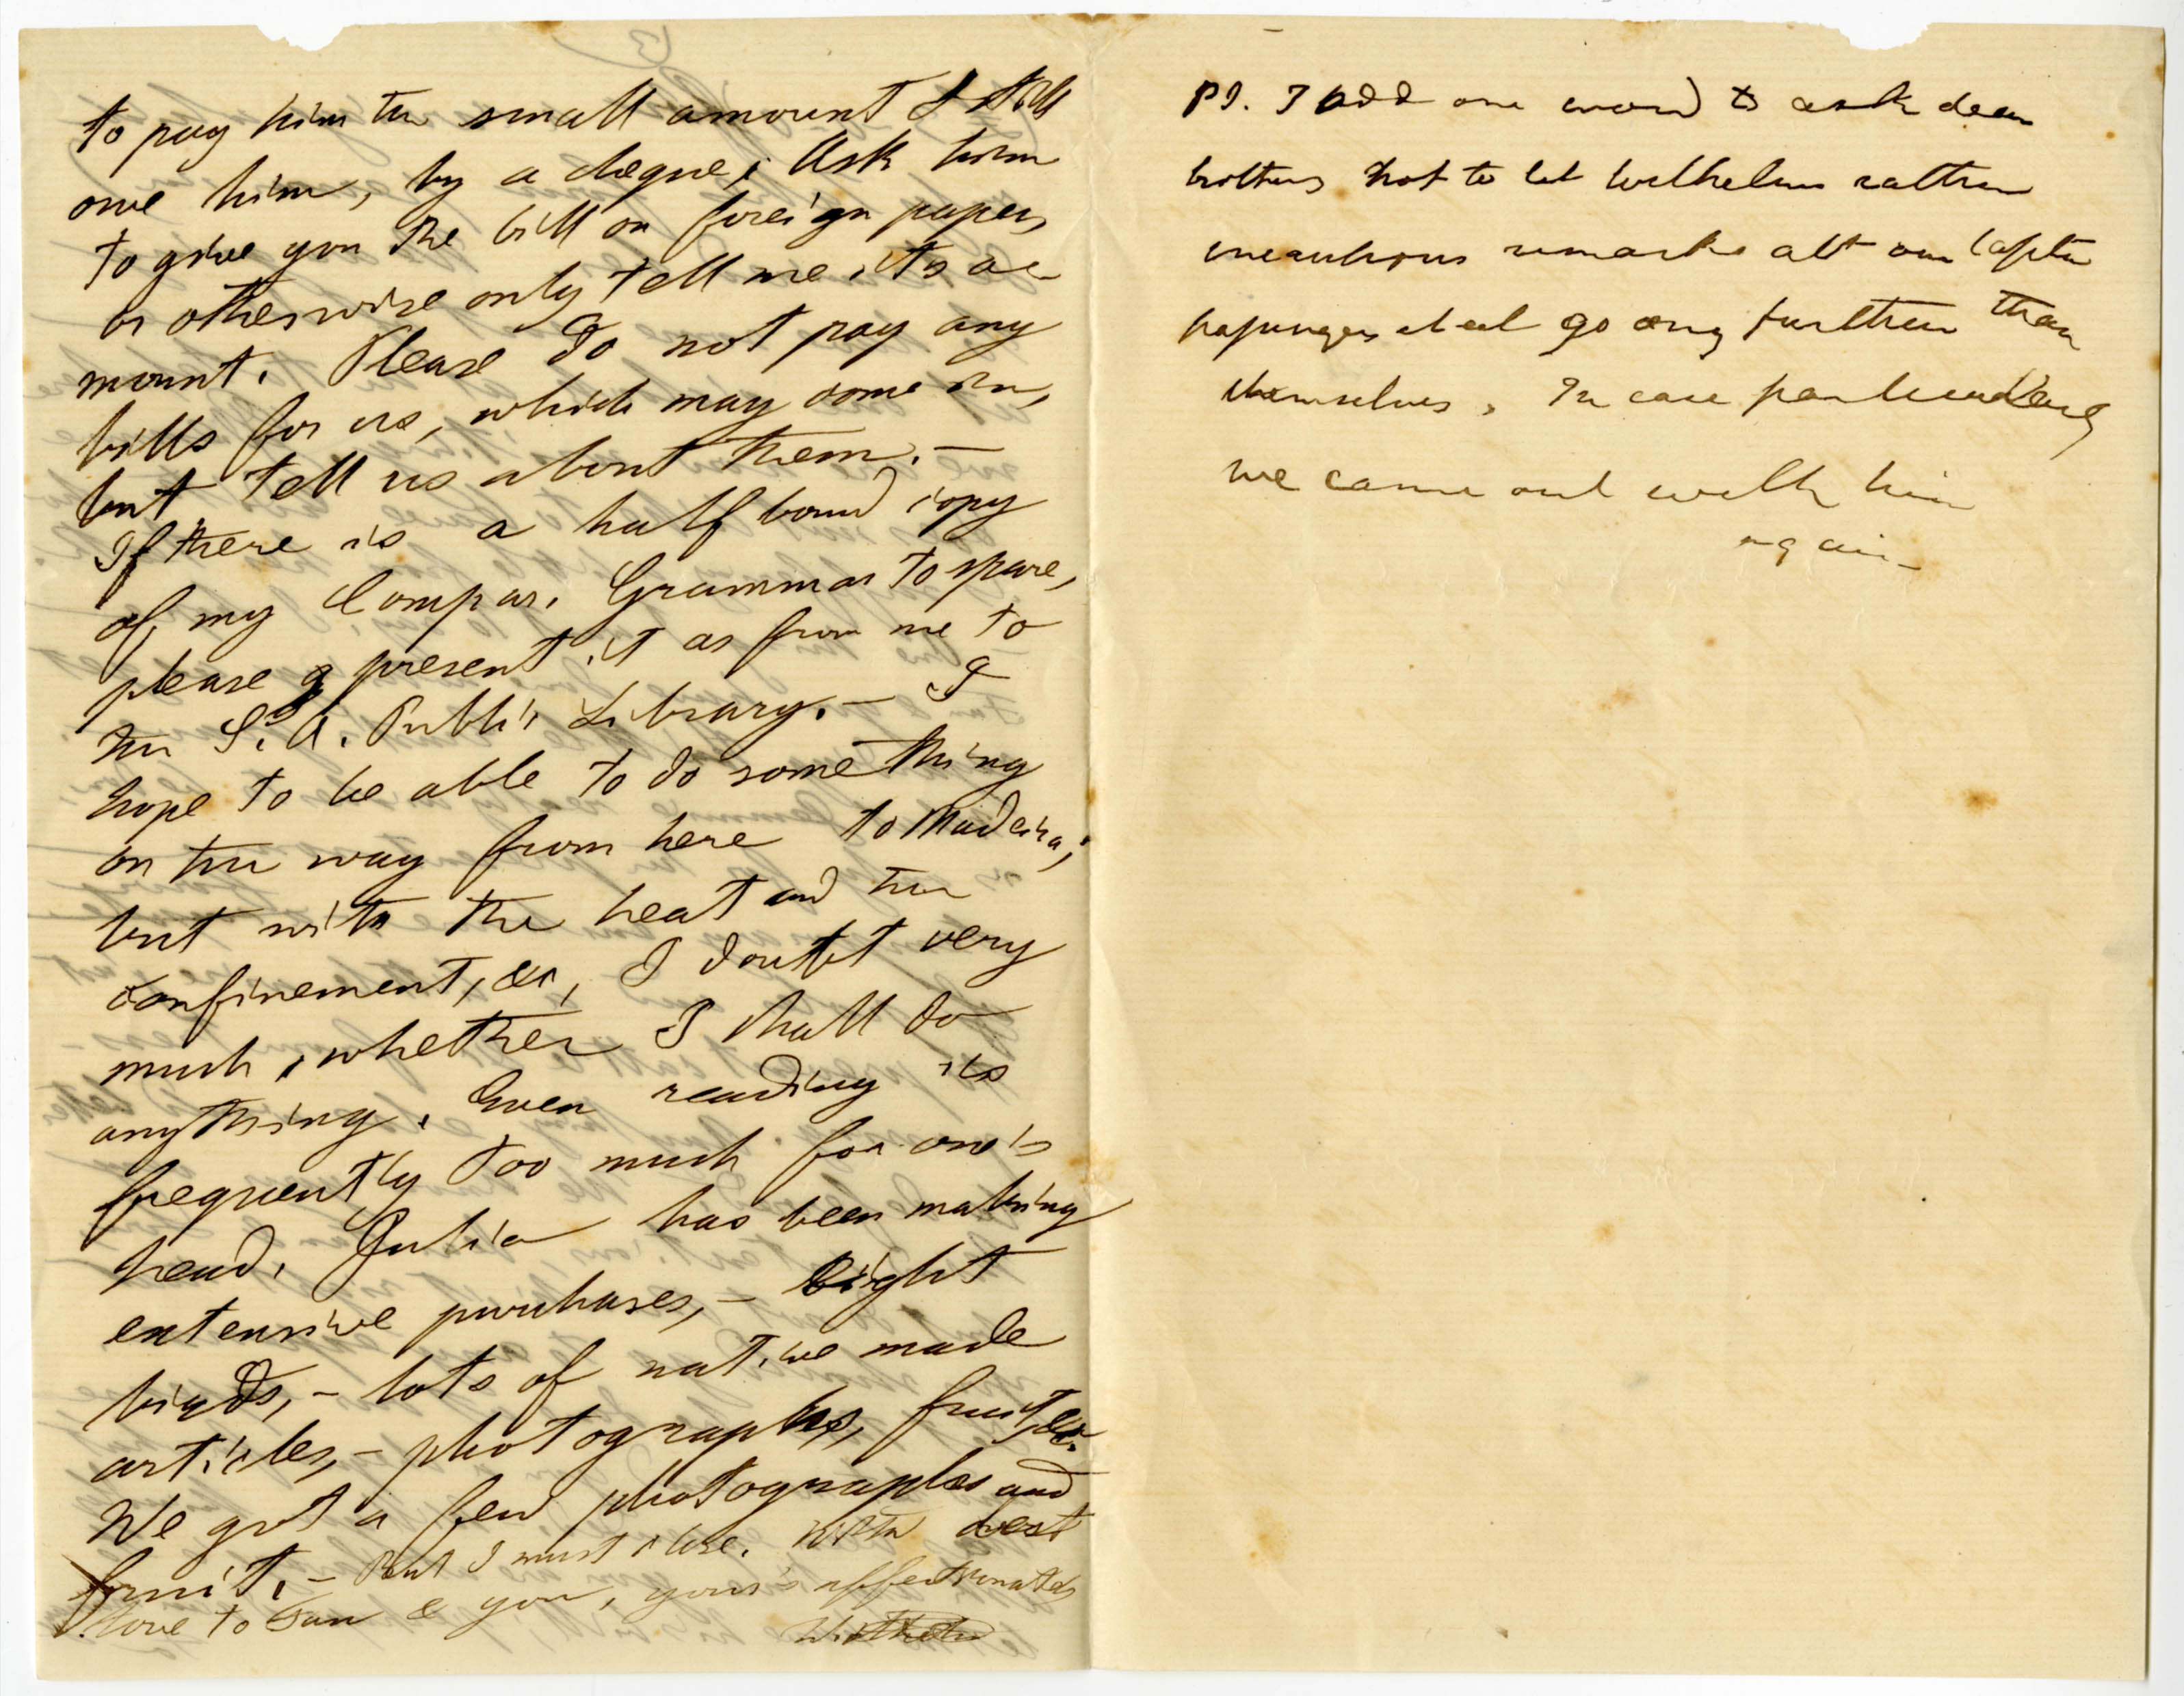 to pay him the small amount I still
owe him, by a cheque; Ask him
to give you the bill on foreign paper,
or otherwise only tell me its a=
mount. Please do not pay any
bills for us, which may come in,
but tell us about them.—
If there is a half bound copy
of my Compar. Grammar to spare,
please present it as from me to
the S. A. Public Library.— I
hope to be able to do something
on the way from here to Madeira;
but with the heat and the
confinement, &c, I doubt very
much, whether I shall do
anything. Even reading is
frequently too much for one's
head. Julia has been making
extensive purchases,— Eight
birds,— lots of native made
articles,— photographs, fruit, &c.
We got a few photographs and
fruit.— But I must close. With best
love to Fan & you, your's affectionately
Wilhelm
PS. I add one word to ask dear
not to let Wilhelms rather
incautious remarks abt our Captn
passengers go any further than
themselves. In case
we came out with him
again—